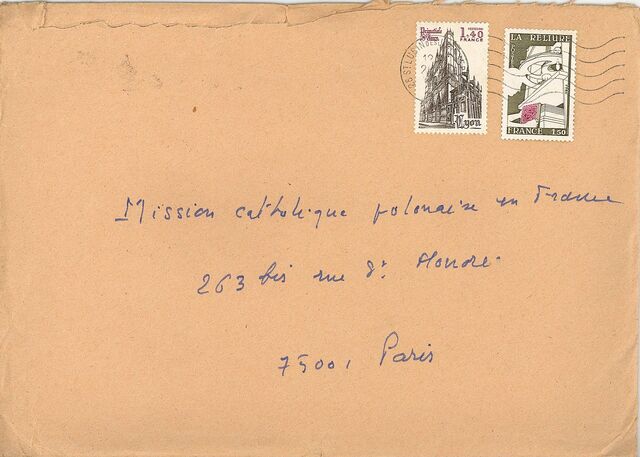 Primatiale
St Jean
1.40
FRANCE
Lyon
LA RELIURE
FRANCE 1.50
Mission catholique polonaise en France
263 bis rue St. Honoré
75001 Paris